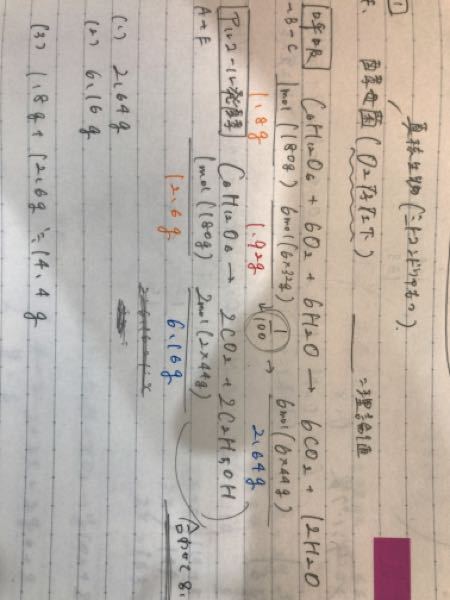 1
真核生物(ミトコンドリアもつ)
酵母菌(O2
=理論値
呼吸
A→B→C
C6H12O6 + 6O2 + 6H2O → 6CO2 + 12H2O
1mol(180g) 6mol(6×32g) 6mol(6×44g)
1.8g 1.92g 1/100 → 2.64g
アルコール発酵
A→F
C6H12O6 → 2CO2 + 2C2H5OH
1mol(180g) 2mol(2×44g)
12.6g 6.16g
合わせて8.
(1) 2.64g
(2) 6.16g
(3) 1.8g + 12.6g = 14.4g